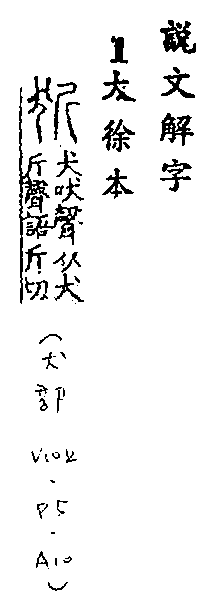 説文解字
1大徐本
㹞犬吠聲从犬
斤聲語斤切
(犬部 V10上.P5.A10)